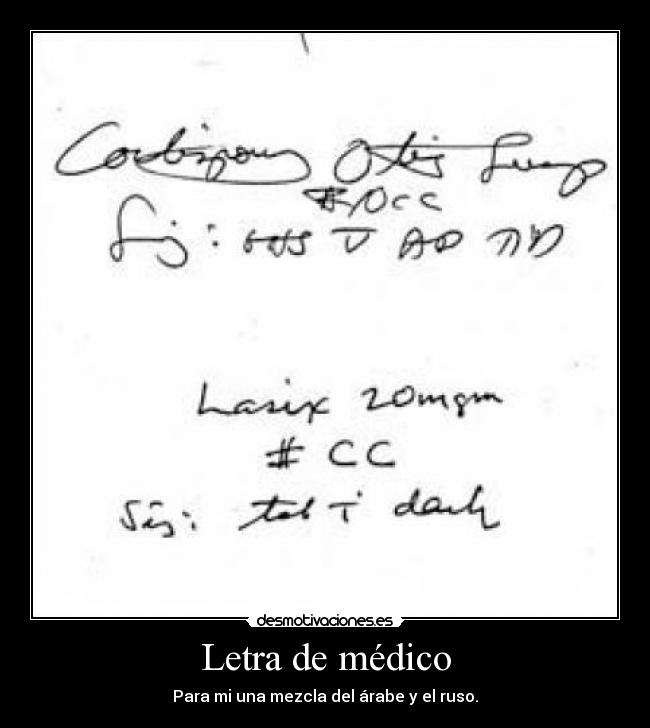 Cortisporin Otic Susp
#10cc
Sig: gtts V AD TID
Lasix 20mgm
# CC
Sig: tab i daily
desmotivaciones.es
Letra de médico
Para mi una mezcla del árabe y el ruso.